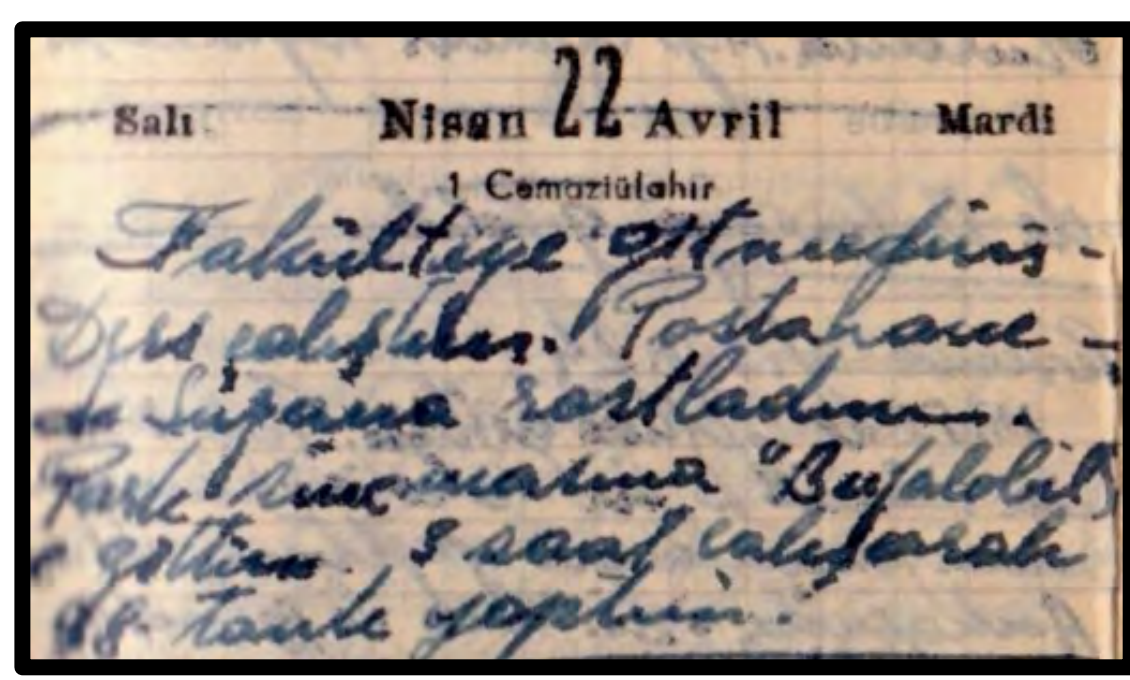 Salı Nisan 22 Avril Mardi
1 Cemaziülahır
Fakülteye gitmedim -
Ders çalıştım. Postahane -
de Suzana rastladım.
Park sinemasına "Bufalobil"
e gittim. 3 saat çalışarak
tank yaptım.